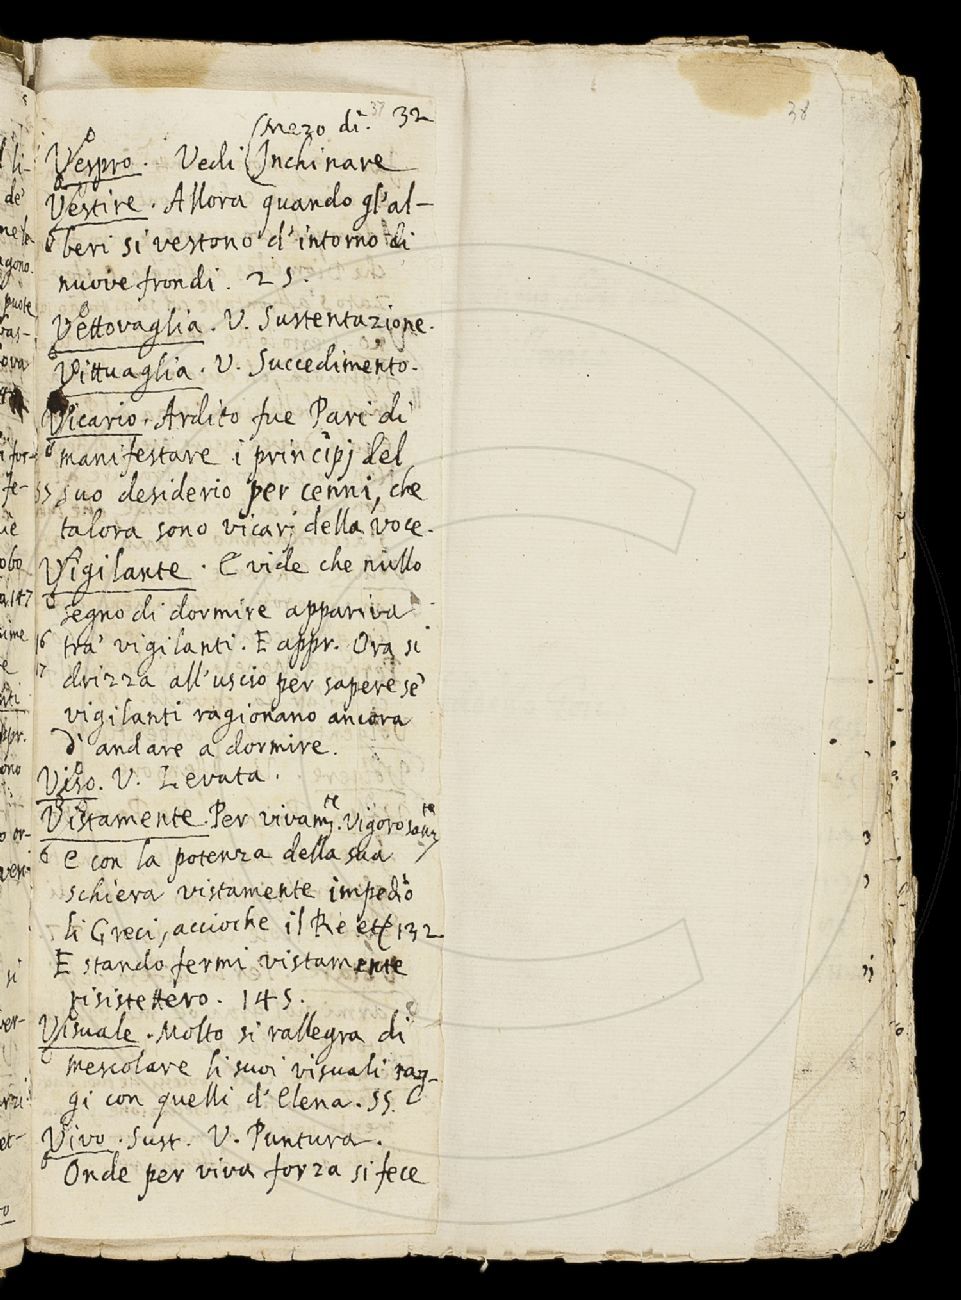 37 32
38
Mezo dì.
Vespro. Vedi Inchinare
Vestire. Allora quando gl'al-
beri si vestono d'intorno di
nuove frondi. 25.
Vettovaglia. V. Sustentazione.
Vittuaglia. V. Succedimento.
Vicario. Ardito fue Pari di
manifestare i principj del
55 suo desiderio per cenni, che
talora sono vicarj della voce.
Vigilante. E vide che nullo
segno di dormire appariva
16 tra' vigilanti. E appr. Ora si
17 drizza all'uscio per sapere se'
vigilanti ragionano ancora
d'andare a dormire.
Viso. V. Levata.
Vistamente. Per vivamte. Vigorosamte
E con la potenza della sua
schiera vistamente impediò
li Greci, accioche il Re etc 132
E stando fermi vistamente
risistettero. 145.
Visuale. Molto si rallegra di
mescolare li suoi visuali rag-
gi con quelli d'Elena. 55.
Vivo. Sust. V. Puntura.
Onde per viva forza si fece